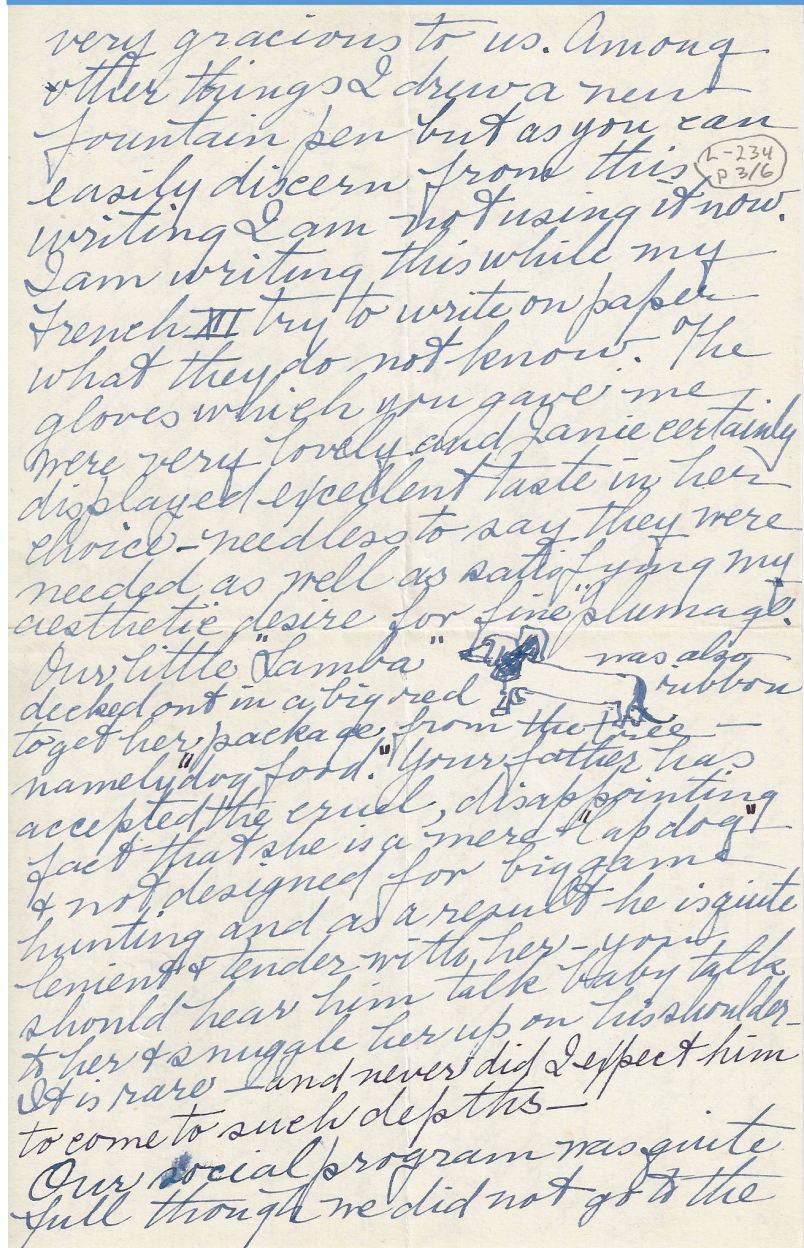 very gracious to us. Among
other things I drew a new
fountain pen but as you can
L-234
p 3/6
easily discern from this
writing I am not using it now.
I am writing this while my
French XII try to write on paper
what they do not know. The
gloves which you gave me
were very lovely and Janie certainly
displayed excellent taste in her
choice - needless to say they were
needed as well as satisfying my
aesthetic desire for fine "plumage".
Our little "Lamba" was also
decked out in a big red ribbon
to get her package from the tree —
namely "dog food." Your father has
accepted the cruel, disappointing
fact that she is a mere "lap dog"
& not designed for big game
hunting and as a result he is quite
lenient & tender with her - you
should hear him talk baby talk
to her & snuggle her up on his shoulder -
It is rare — and never did I expect him
to come to such depths —
Our social program was quite
full though we did not go to the